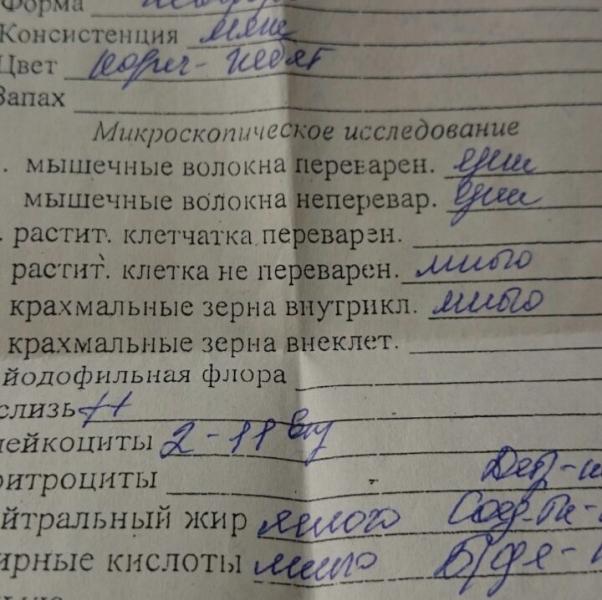 Форма
Консистенция мягк
Цвет корич-
Запах
Микроскопическое исследование
. мышечные волокна переварен. един
мышечные волокна неперевар. един
. растит. клетчатка переварен.
растит. клетка не переварен. много
крахмальные зерна внутрикл. много
крахмальные зерна внеклет.
йодофильная флора
слизь ++
ейкоциты 2-11 в п/
ритроциты
йтральный жир много
ирные кислоты много